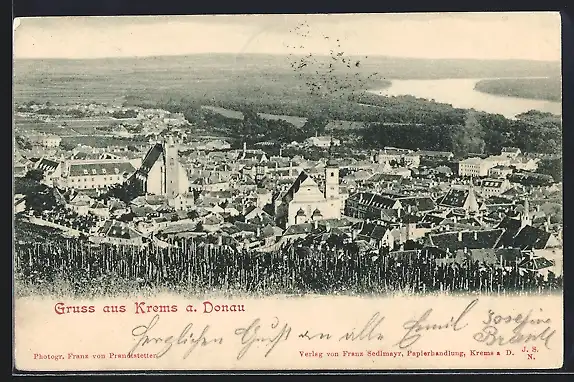 Gruss aus Krems a. Donau
Herzlichen Gruß an alle Emil Josefine
Brandl
Photogr. Franz von Prandtstetten
Verlag von Franz Sedlmayr, Papierhandlung, Krems a D. J. S.
N.